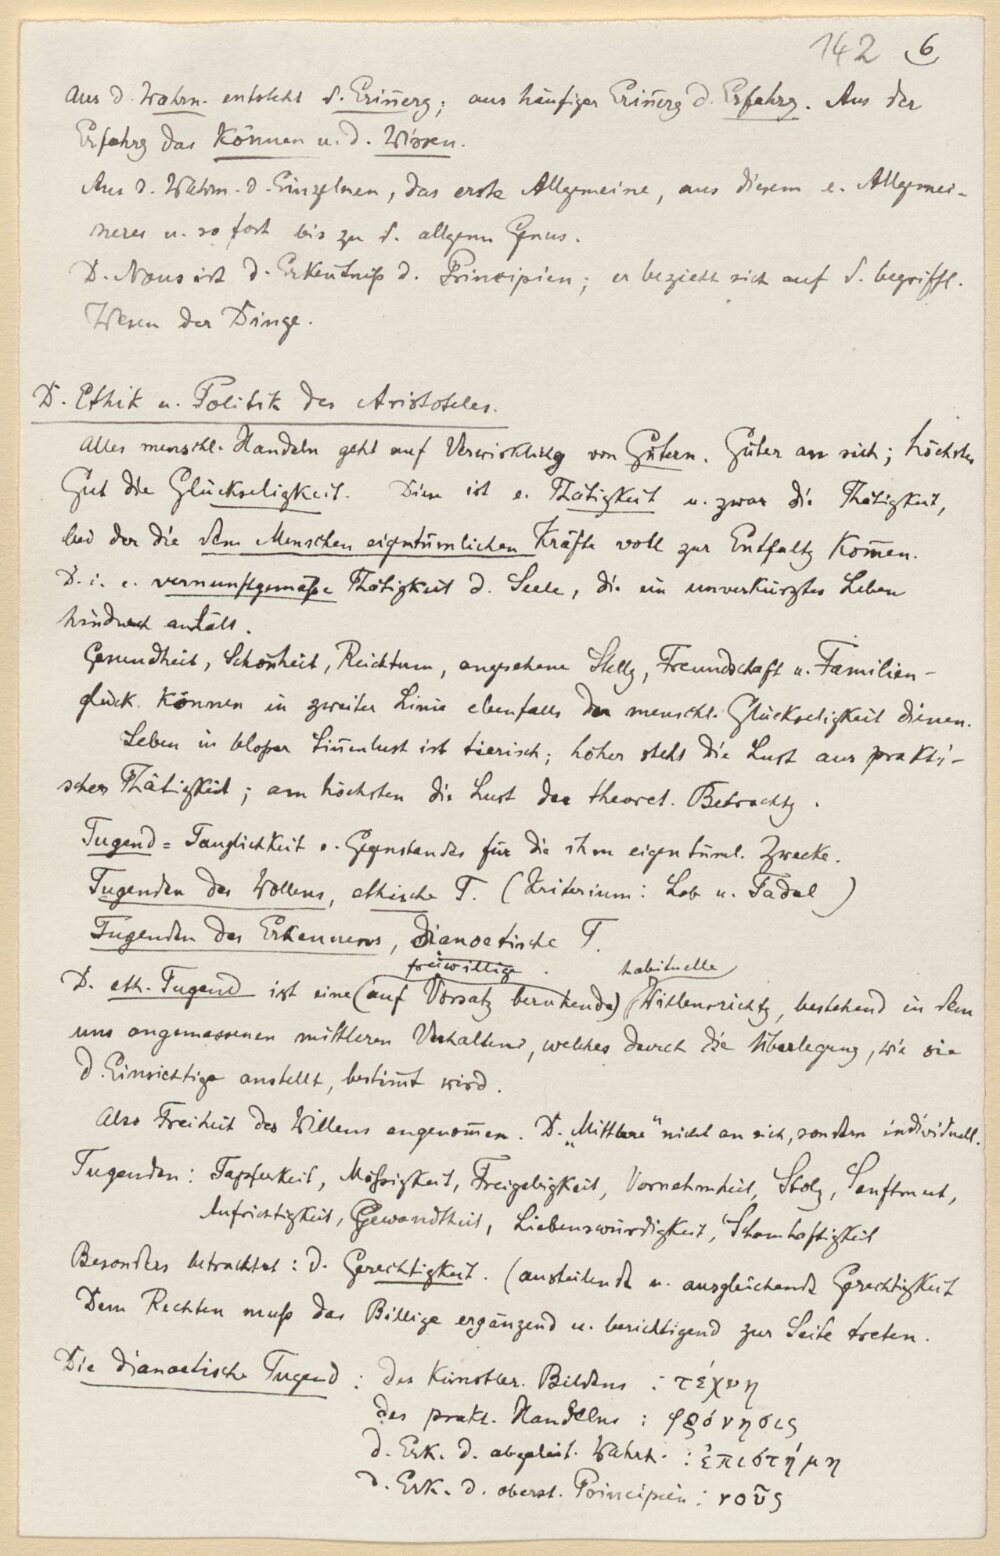 142 6
Aus d. Wahrn. entsteht d. Erinnerg; aus häufiger Erinnerg d. Erfahrg. Aus der
Erfahrg das Können u. d. Wissen.
Aus d. Wahrn. d. Einzelnen, das erste Allgemeine, aus diesem e. Allgemei-
neres u. so fort bis zu d. allgem Genus.
D. Nous ist d. Erkenntniß d. Principien; er bezieht sich auf d. begriffl.
Wesen der Dinge.
D. Ethik u. Politik des Aristoteles.
Alles menschl. Handeln geht auf Verwirklichg von Gütern. Güter an sich; höchstes
Gut die Glückseligkeit. Diese ist e. Thätigkeit u. zwar die Thätigkeit,
bei der die dem Menschen eigentümlichen Kräfte voll zur Entfaltg kommen.
D. i. e. vernunftgemäße Thätigkeit d. Seele, die ein unverkürztes Leben
hindurch anhält.
Gesundheit, Schönheit, Reichtum, angesehene Stellg, Freundschaft u. Familien-
glück können in zweiter Linie ebenfalls der menschl. Glückseligkeit dienen.
Leben in bloßer Sinnenlust ist tierisch; höher steht die Lust aus prakti-
scher Thätigkeit; am höchsten die Lust der theoret. Betrachtg.
Tugend = Tauglichkeit e. Gegenstandes für die ihm eigentüml. Zwecke.
Tugenden des Wollens, ethische T. (Kriterium: Lob u. Tadel)
Tugenden des Erkennens, dianoetische T.
freiwillige habituelle
D. eth. Tugend ist eine (auf Vorsatz beruhende) Willensrichtg, bestehend in dem
uns angemessenen mittleren Verhalten, welches durch die Überlegung, wie sie
d. Einsichtige anstellt, bestimmt wird.
Also Freiheit des Willens angenommen. D. „Mittlere“ nicht an sich, sondern individuell.
Tugenden: Tapferkeit, Mäßigkeit, Freigebigkeit, Vornehmheit, Stolz, Sanftmut,
Aufrichtigkeit, Gewandtheit, Liebenswürdigkeit, Schamhaftigkeit
Besonders betrachtet: d. Gerechtigkeit. (austeilende u. ausgleichende Gerechtigkeit
Dem Rechten muß das Billige ergänzend u. berichtigend zur Seite treten.
Die dianoetische Tugend: des künstler. Bildens: τέχνη
des prakt. Handelns: φρόνησις
d. Erk. d. abgeleit. Wahrh.: ἐπιστήμη
d. Erk. d. oberst. Principien: νοῦς